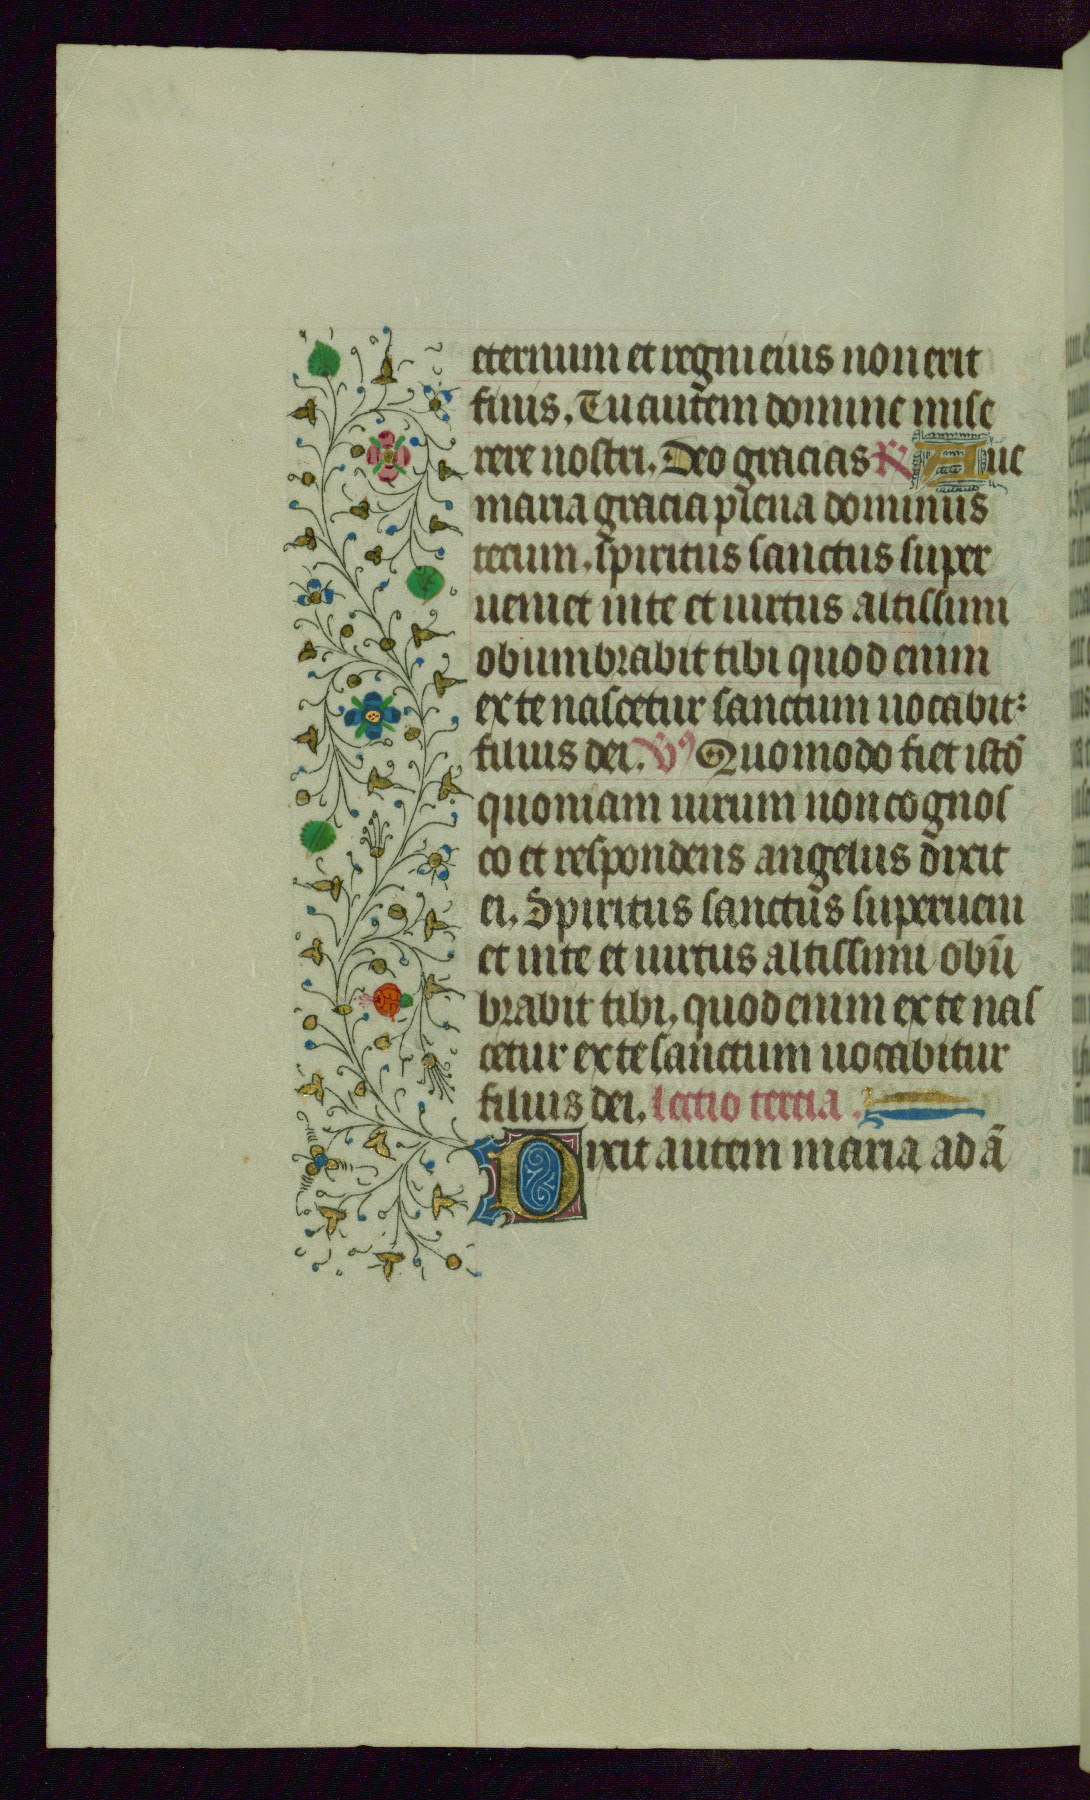 eternum et regni eius non erit
finis. Tu autem domine mise
rere nostri. Deo gracias R Aue
maria gracia plena dominus
tecum. spiritus sanctus super
ueniet in te et uirtus altissimi
obumbrabit tibi quod enim
ex te nascetur sanctum uocabit᷑
filius dei. V9 Quomodo fiet istō
quoniam uirum non cognos
co et respondens angelus dixit
ei. Spiritus sanctus superueni
et in te et uirtus altissimi obū
brabit tibi. quod enim ex te nas
cetur ex te sanctum uocabitur
filius dei. lectio tercia.
Dixit autem maria ad ā